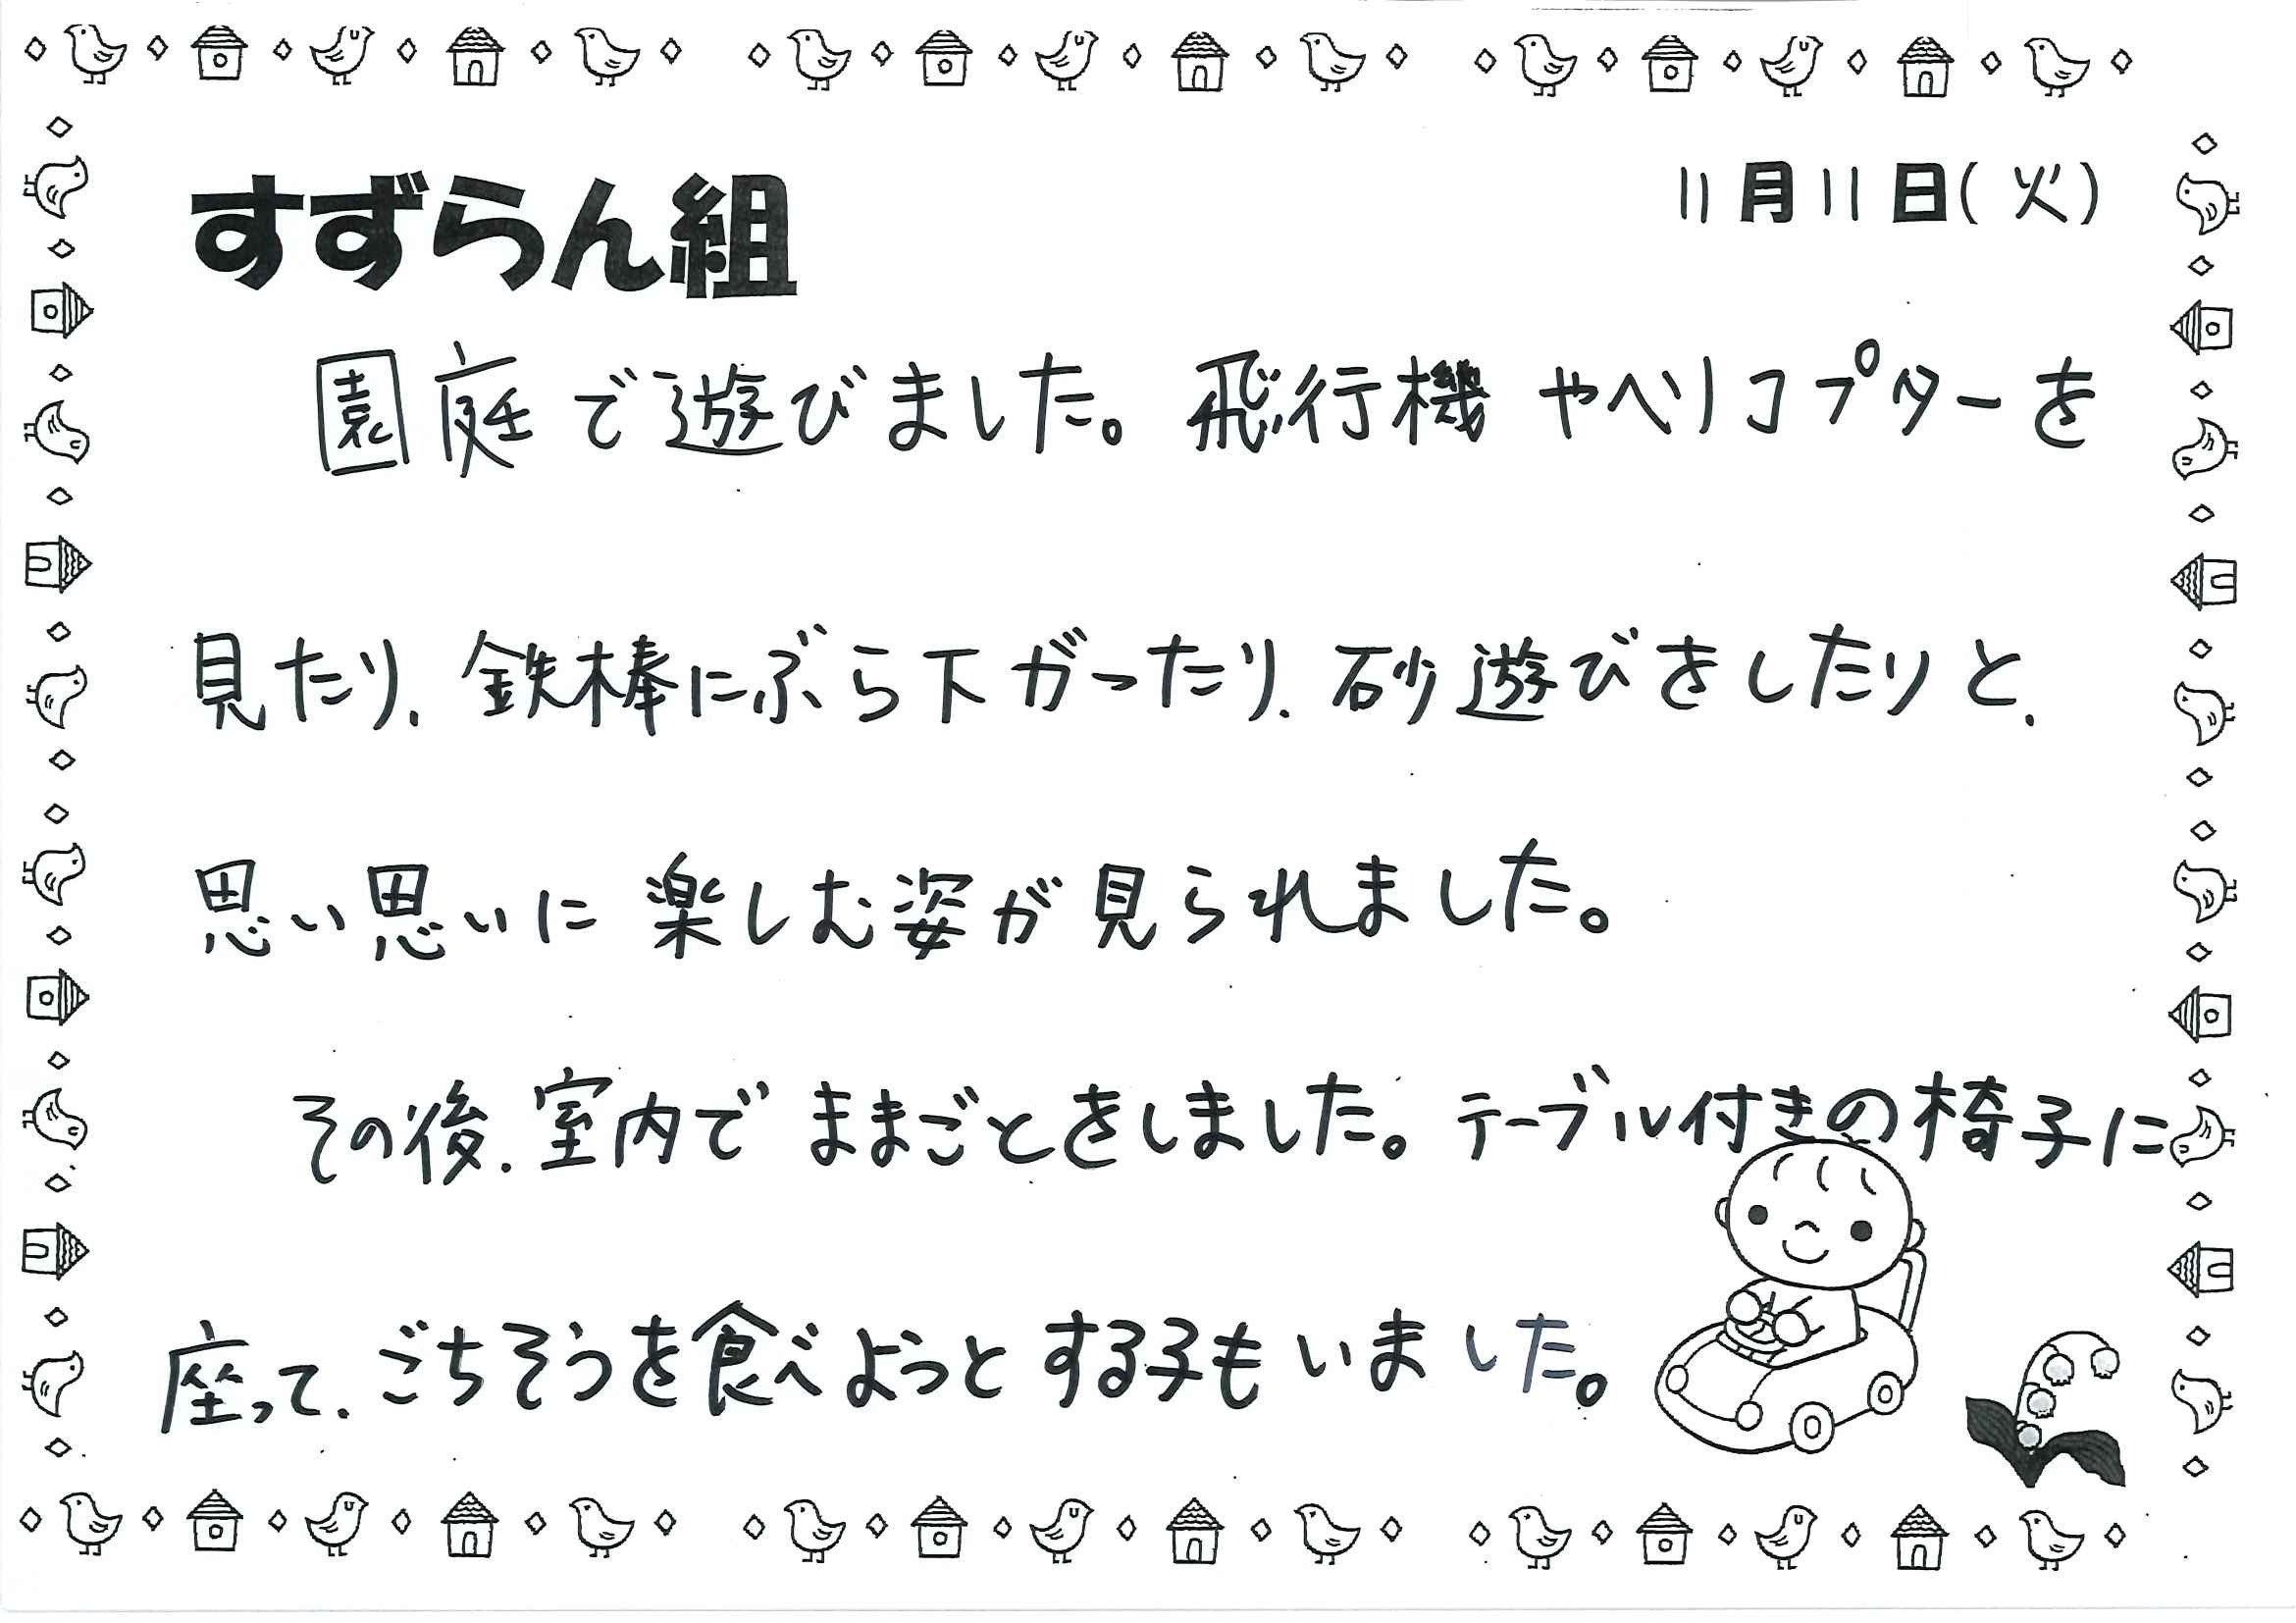 すずらん組
11月11日(火)
園庭で遊びました。飛行機やヘリコプターを
見たり、鉄棒にぶら下がったり、砂遊びをしたりと、
思い思いに楽しむ姿が見られました。
その後、室内でままごとをしました。テーブル付きの椅子に
座って、ごちそうを食べようとする子もいました。